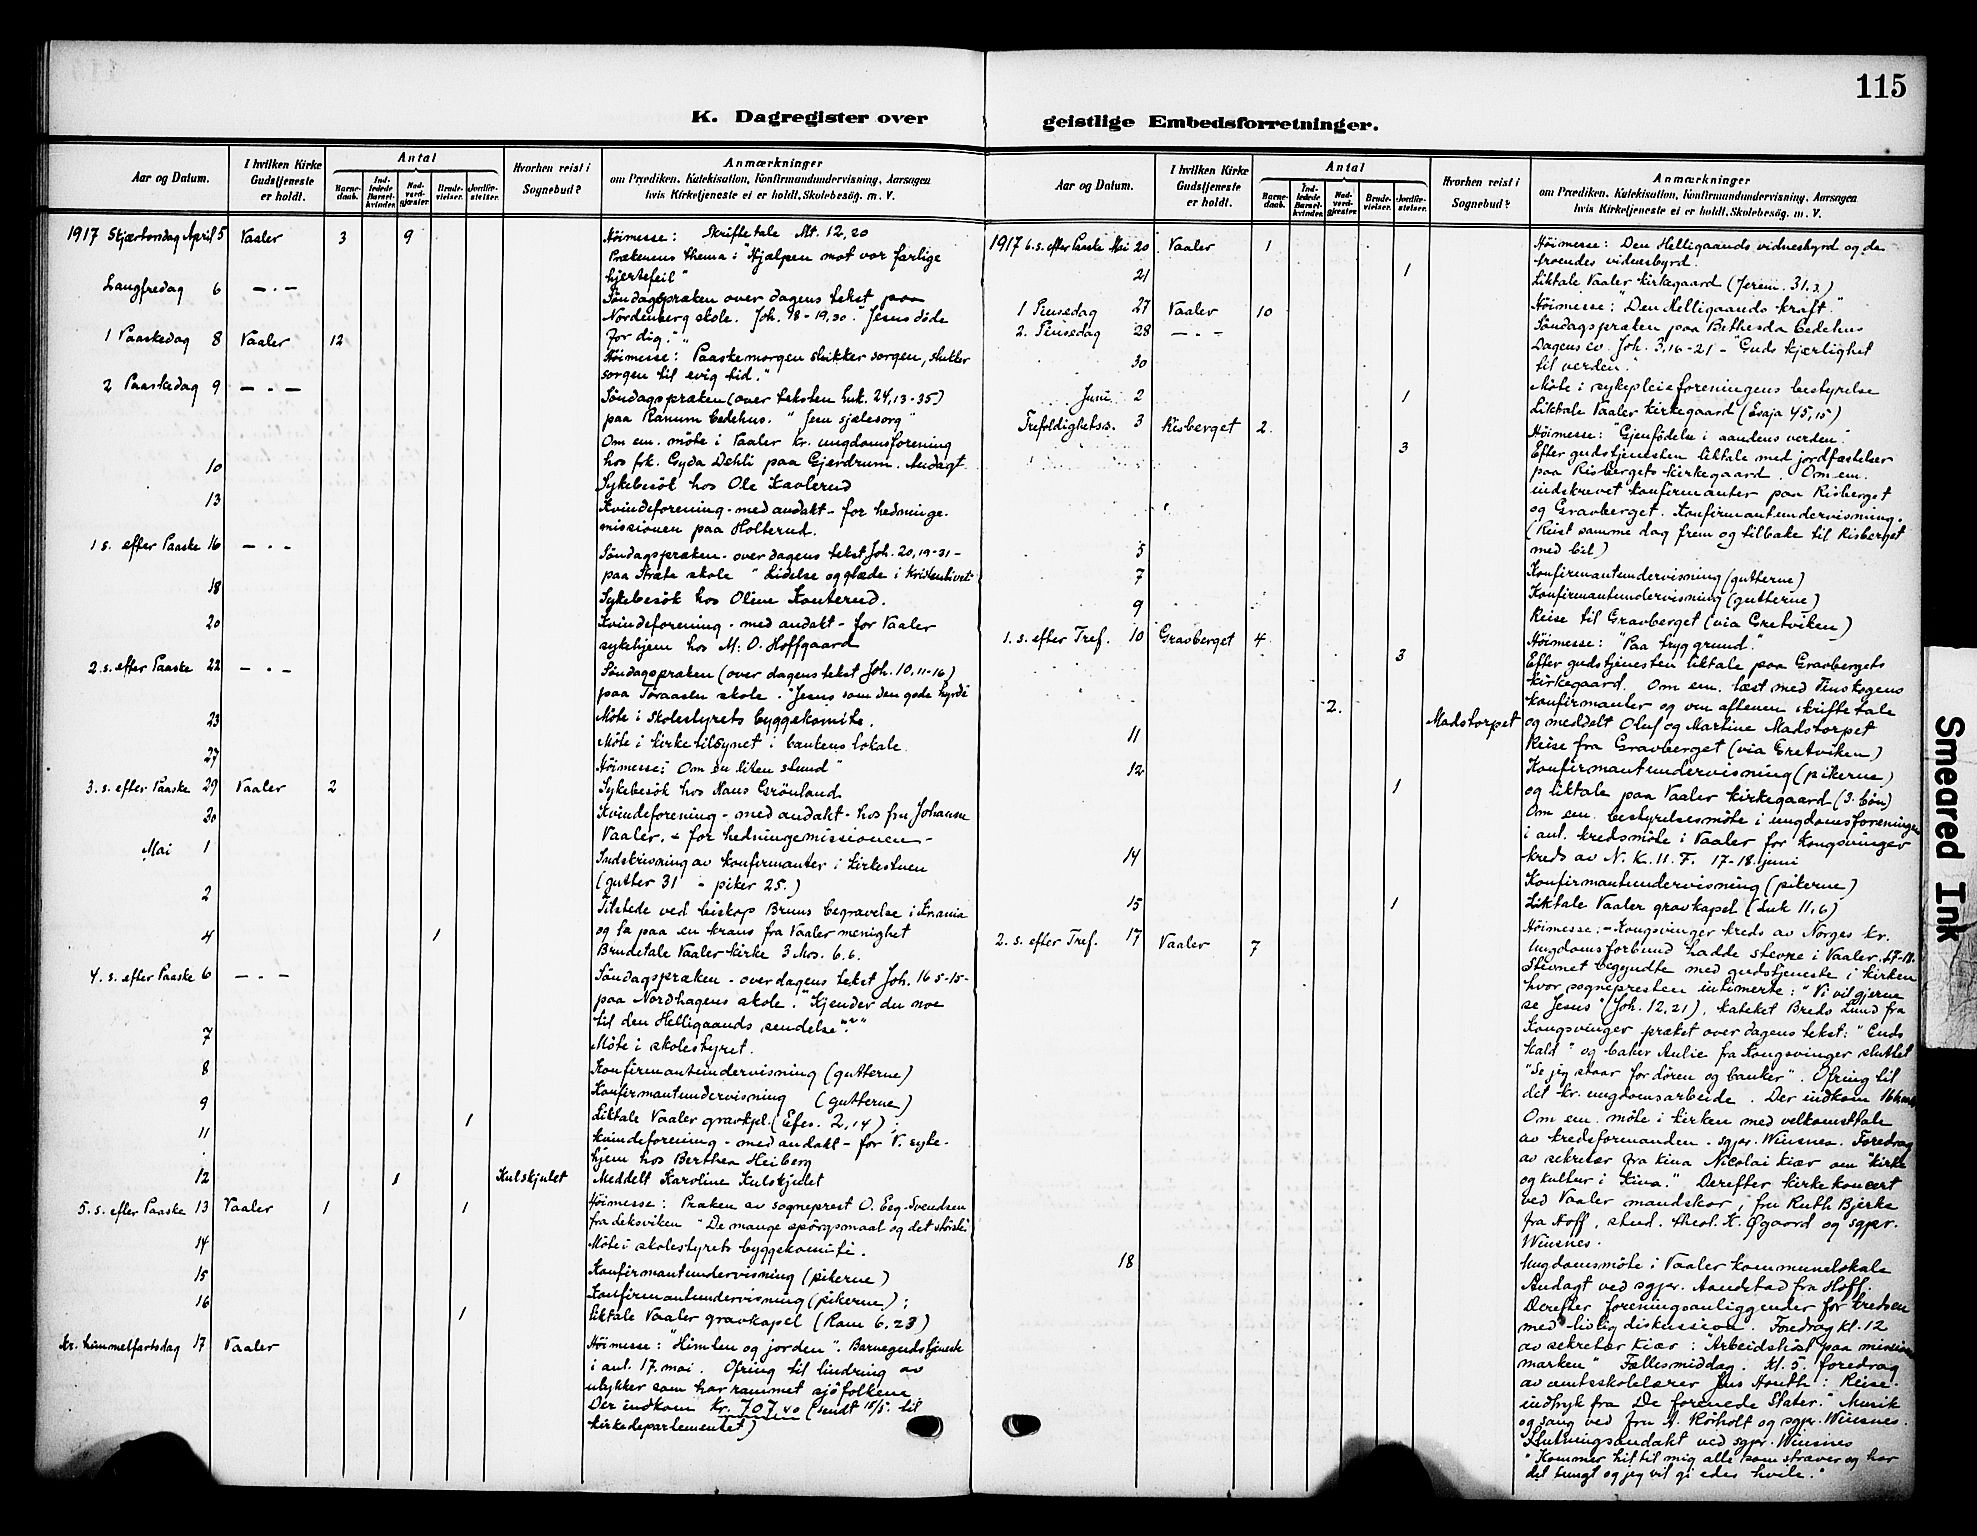 115
K. Dagregister over
geistlige Embedsforretninger.
Aar og Datum.
I hvilken Kirke Gudstjeneste er holdt.
Antal
Barnedaab.
Indledede Barselkvinder.
Nadverdgjæster.
Brudevielser.
Jordfæstelser.
Hvorhen reist i Sognebud?
Anmærkninger
om Prædiken, Katekisation, Konfirmandundervisning, Aarsagen
hvis Kirketjeneste ei er holdt, Skolebesøg, m. V.
1917 Skjærtorsdag April 5 Vaaler 3 9 Høimesse: Skriftetale Mt. 12,20
Prækenens thema: "Hjælpen mot vor farlige
hjertefeil"
Langfredag 6 — „ — Søndagspræken over dagens tekst paa
Nordenberg skole. Joh. 18-19,30. "Jesus døde
for dig."
1 Paaskedag 8 Vaaler 12 Høimesse: Paaskemorgen slukker sorgen, slukker
sorgen til evig tid."
2 Paaskedag 9 — „ — Søndagspræken (over teksten Luk. 24,13-35)
paa Ranum bedehus. "Jesu sjælesorg"
Om em. møte i Vaaler kr. ungdomsforening
hos frk. Gyda Dehli paa Gjerdrum. Andagt
10 Sykebesøk hos Ole Kavlerud
13 Kvindeforening - med andakt - for hedninge-
missionen paa Holterud.
1 s. efter Paaske 16 — „ — Søndagspræken - over dagens tekst Joh. 20,19-31 -
paa Stræte skole "Lidelse og glæde i kristenlivet"
18 Sykebesøk hos Oline Konterud.
20 Kvindeforening - med andakt - for Vaaler
sykehjem hos M. O. Hoffgaard
2. s. efter Paaske 22 — „ — Søndagspræken (over dagens tekst Joh. 10,11-16)
paa Toraasen skole. "Jesus som den gode hyrde"
23 Møte i Skolestyrets byggekomite.
27 Møte i kirketilsynet i bankens lokale
3. s. efter Paaske 29 Vaaler 2 Høimesse: "Om en liten stund"
Sykebesøk hos Hans Grønland
30 Kvindeforening - med andakt - hos fru Johanne
Vaaler. - for hedningemissionen -
Mai 1 Indskrivning av konfirmanter i kirkestuen
(gutter 31 - piker 25.)
2 Tilstede ved biskop Bruns begravelse i Kr.ania
og la paa en krans fra Vaaler menighet
4 1 Brudetale Vaaler kirke 3 Mos. 6.6.
4. s. efter Paaske 6 — „ — Søndagspræken - over dagens tekst Joh. 16 5-15 -
paa Nordhagens skole. "Kjender du noe
til den Helligaands sendelse?"
7 Møte i skolestyret.
8 Konfirmantundervisning (gutterne)
9 Konfirmantundervisning (gutterne)
1 Liktale Vaaler gravkpl. (Efes. 2,14);
11 Kvindeforening - med andakt - for V. syke-
hjem hos Berthea Heiberg
12 1 Kulskjulet Meddelt Karoline Kulskjulet
5. s. efter Paaske 13 Vaaler 1 1 Høimesse: Præken av sogneprest O. Eeg-Svendsen
fra Leksviken "De mange spørgsmaal og det største"
14 Møte i skolestyrets byggekomite.
15 Konfirmantundervisning (pikerne)
16 Konfirmantundervisning (pikerne);
1 Liktale Vaaler gravkapel (Rom 6.23)
Kr. himmelfartsdag 17 Vaaler Høimesse: "Himlen og jorden". Barnegudstjeneste
i anl. 17. mai. Ofring til lindring av
ulykker som har rammet sjøfolkene
Der indkom kr. 707.40 (sendt 15/5. til
kirkedepartementet)
Aar og Datum.
I hvilken Kirke Gudstjeneste er holdt.
Antal
Barnedaab.
Indledede Barselkvinder.
Nadverdgjæster.
Brudevielser.
Jordfæstelser.
Hvorhen reist i Sognebud?
Anmærkninger
om Prædiken, Katekisation, Konfirmandundervisning, Aarsagen
hvis Kirketjeneste ei er holdt, Skolebesøg, m. V.
1917 6. s. efter Paaske Mai 20 Vaaler 1 Høimesse: Den Helligaands vidnesbyrd og de
troendes vidnesbyrd.
21 1 Liktale Vaaler kirkegaard (Jerem. 31.3)
1 Pinsedag 27 Vaaler 10 Høimesse: "Den Helligaands kraft"
2. Pinsedag 28 — „ — Søndagspræken paa Bethesda bedehus
Dagens ev. Joh. 3,16-21 - "Guds kjærlighet
til verden."
30 Møte i sykepleieforeningens bestyrelse
Juni 2 1 Liktale Vaaler kirkegaard (Esaja 45,15)
Trefoldighetss. 3 Risberget 2 Høimesse: "Gjenfødelse i aandens verden".
3 Efter gudstjenesten liktale med jordfæstelser
paa Risbergets kirkegaard. Om em.
indskrevet konfirmanter paa Risberget
og Gravberget. Konfirmantundervisning.
(Reist samme dag frem og tilbake til Risberget
med bil)
5 Konfirmantundervisning (gutterne)
7 Konfirmantundervisning (gutterne)
9 Reise til Gravberget (via Gretviken)
1. s. efter Tref. 10 Gravberget 4 Høimesse: "Paa trygg grund".
3 Efter gudstjenesten liktale paa Gravbergets
kirkegaard. Om em. læst med Finskogens
2. konfirmanter og om aftenen skriftetale
Madstorpet og meddelt Oluf og Martine Madstorpet
11 Reise fra Gravberget (via Gretviken)
12 Konfirmantundervisning (pikerne)
1 og liktale paa Vaaler kirkegaard (3. bøn)
Om em. bestyrelsesmøte i ungdomsforeningen
i anl. kredsmøte i Vaaler for Kongsvinger
kreds av N. K. U. F. 17-18. juni
14 Konfirmantundervisning (pikerne)
15 1 Liktale Vaaler gravkapel (Luk 11,6)
2. s. efter Tref. 17 Vaaler 7 Høimesse: - Kongsvinger kreds av Norges kr.
Ungdomsforbund hadde stevne i Vaaler 17-18.
Stevnet begyndte med gudstjeneste i kirken
hvor sognepresten intimerte: "Vi vil gjerne
se Jesus" (Joh. 12,21), kateket Bredo Lund fra
Kongsvinger præket over dagens tekst: "Guds
kald" og baker Aulie fra Kongsvinger sluttet
"Se jeg staar for døren og banker". Ofring til
det kr. ungdomsarbeide. Der indkom
Om em. møte i kirken med velkomsttale
av kredsformanden. sgpr. Winsnes. Foredrag
av sekretær fra Kina Nicolai Kiær om "kirke
og kultur i Kina." Derefter kirkekoncert
ved Vaaler mandskor, fru Ruth Bjerke
fra Hoff, stud. theol. K. Øgaard og sgpr.
Winsnes.
18 Ungdomsmøte i Vaaler kommunelokale
Andagt ved sgpr. Aandstad fra Hoff.
Derefter foreningsanliggender for kredsen
med livlig diskussion. Foredrag kl. 12
av sekretær Kiær: "Arbeidshøst paa missions
marken" Fællesmiddag. Kl. 5. foredrag
av amtsskolelærer Jens Houth: "Reise-
indtryk fra De forenede Stater." Musik
og sang ved fru A. Rørholt og sgpr. Winsnes.
Slutningsandakt ved sgpr. Winsnes
"Kommer hit til mig alle som stræver og har
det tungt og jeg vil gi eder hvile."
Smeared Ink